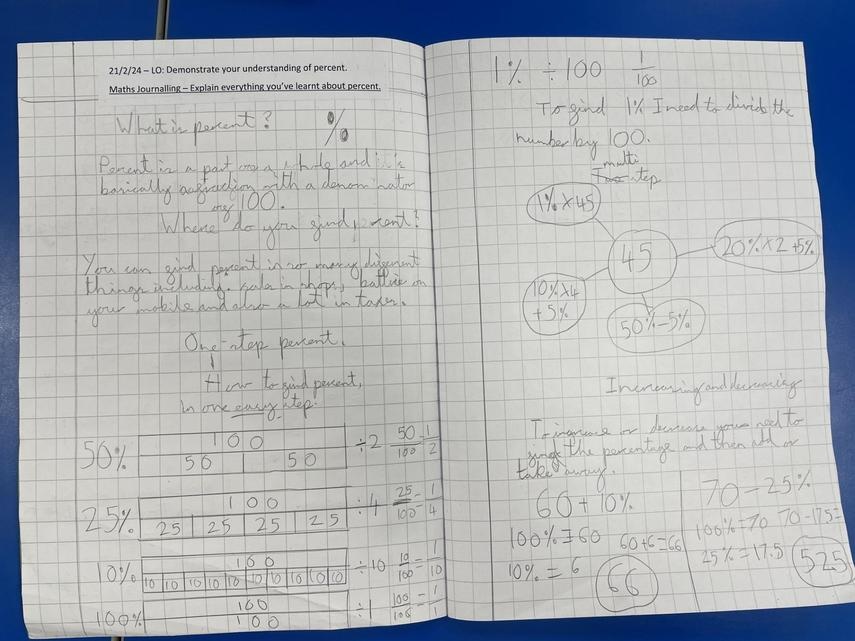 21/2/24 – LO: Demonstrate your understanding of percent.
Maths Journalling – Explain everything you've learnt about percent.
What is percent? %
Percent is a part of a whole and it is
basically a fraction with a denominator
of 100.
Where do you find percent?
You can find percent in so many different
things including. sales in shops, battire on
your mobile and also a lot in taxes.
One-step percent.
How to find percent,
in one easy step.
50%
100
50 50
÷2 50/100 = 1/2
25%
100
25 25 25 25
÷4 25/100 = 1/4
10%
100
10 10 10 10 10 10 10 10 10 10
÷10 10/100 = 1/10
100%
100
100
÷1 100/100 = 1/1
1% ÷100 1/100
To find 1% I need to divide the
number by 100.
multi
step
1% x 45
45
20% x 2 + 5%
10% x 4
+ 5%
50% - 5%
Increasing and decreasing
To increase or decrease you need to
find the percentage and then add or
take away.
60 + 10%
100% = 60 60+6=66
10% = 6
66
70 - 25%
100% = 70 70 - 17.5 =
25% = 17.5
52.5